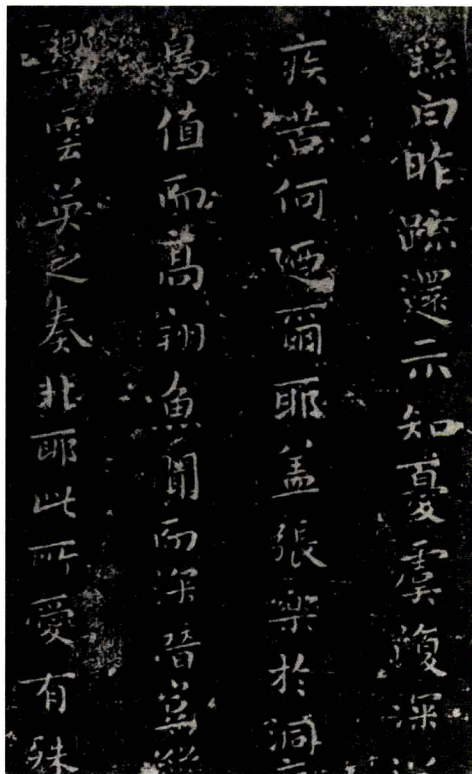 繇白昨疏還示知憂虞復深
疾苦何廼爾耶蓋張樂於洞
鳥值而高翔魚聞而深潛豈絲
響雲英之奏非耶此所愛有殊